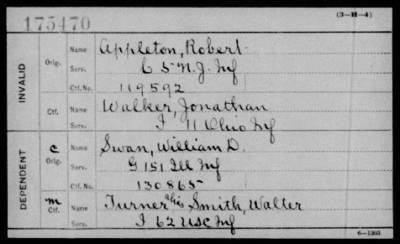 175470
(3-H-4)
INVALID
Orig.
Name Appleton, Robert
Serv. C 5 N.J. Inf
Ctf. No. 119592
Ctf.
Name Walker, Jonathan
Serv. I 11 Ohio Inf
DEPENDENT
C
Orig.
Name Swan, William D.
Serv. G 151 Ill Inf
Ctf. No. 130865
m
Ctf.
Name Turner Smith, Walter
Serv. I 62 USC Inf
6-1303